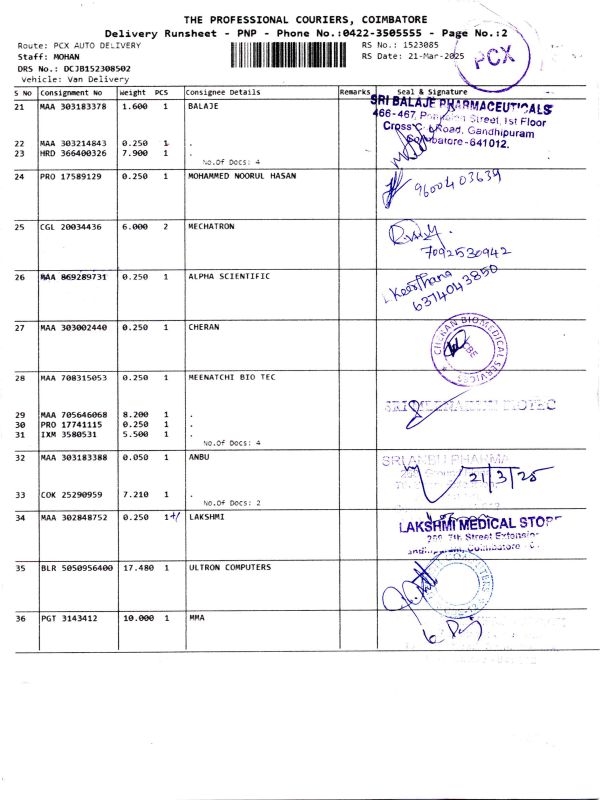 THE PROFESSIONAL COURIERS, COIMBATORE
Delivery Runsheet - PNP - Phone No.:0422-3505555 - Page No.:2
Route: PCX AUTO DELIVERY
RS No.: 1523085
Staff: MOHAN
RS Date: 21-Mar-2025
PCX
DRS No.: DCJB152308502
Vehicle: Van Delivery
S No Consignment No Weight PCS Consignee Details Remarks Seal & Signature
21 MAA 303183378 1.600 1 BALAJE
SRI BALAJE PHARMACEUTICALS
466-467, Street, 1st Floor
Cross Road, Gandhipuram
Coimbatore-641012.
22 MAA 303214843 0.250 1 .
23 HRD 366400326 7.900 1 .
No.Of Docs: 4
24 PRO 17589129 0.250 1 MOHAMMED NOORUL HASAN
9600403639
25 CGL 20034436 6.000 2 MECHATRON
7092530942
26 MAA 869289731 0.250 1 ALPHA SCIENTIFIC
Keerthana
6374043850
27 MAA 303002440 0.250 1 CHERAN
CHERAN BIOMEDICAL SERVICES
CBE
28 MAA 708315053 0.250 1 MEENATCHI BIO TEC
SRI MEENAKSHI BIOTEC
29 MAA 705646068 8.200 1 .
30 PRO 17741115 0.250 1 .
31 IXM 3580531 5.500 1 .
No.Of Docs: 4
32 MAA 303183388 0.050 1 ANBU
SRI ANBU PHARMA
21/3/25
33 COK 25290959 7.210 1 .
No.Of Docs: 2
34 MAA 302848752 0.250 1 LAKSHMI
LAKSHMI MEDICAL STORE
7th Street Extension
Coimbatore
35 BLR 5050956400 17.480 1 ULTRON COMPUTERS
36 PGT 3143412 10.000 1 MMA